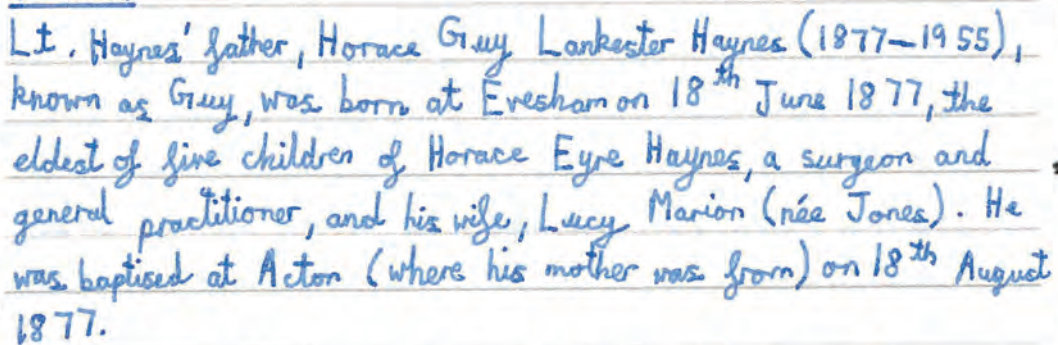 Lt. Haynes' father, Horace Guy Lankester Haynes (1877–1955),
known as Guy, was born at Evesham on 18th June 1877, the
eldest of five children of Horace Eyre Haynes, a surgeon and
general practitioner, and his wife, Lucy Marion (née Jones). He
was baptised at Acton (where his mother was from) on 18th August
1877.